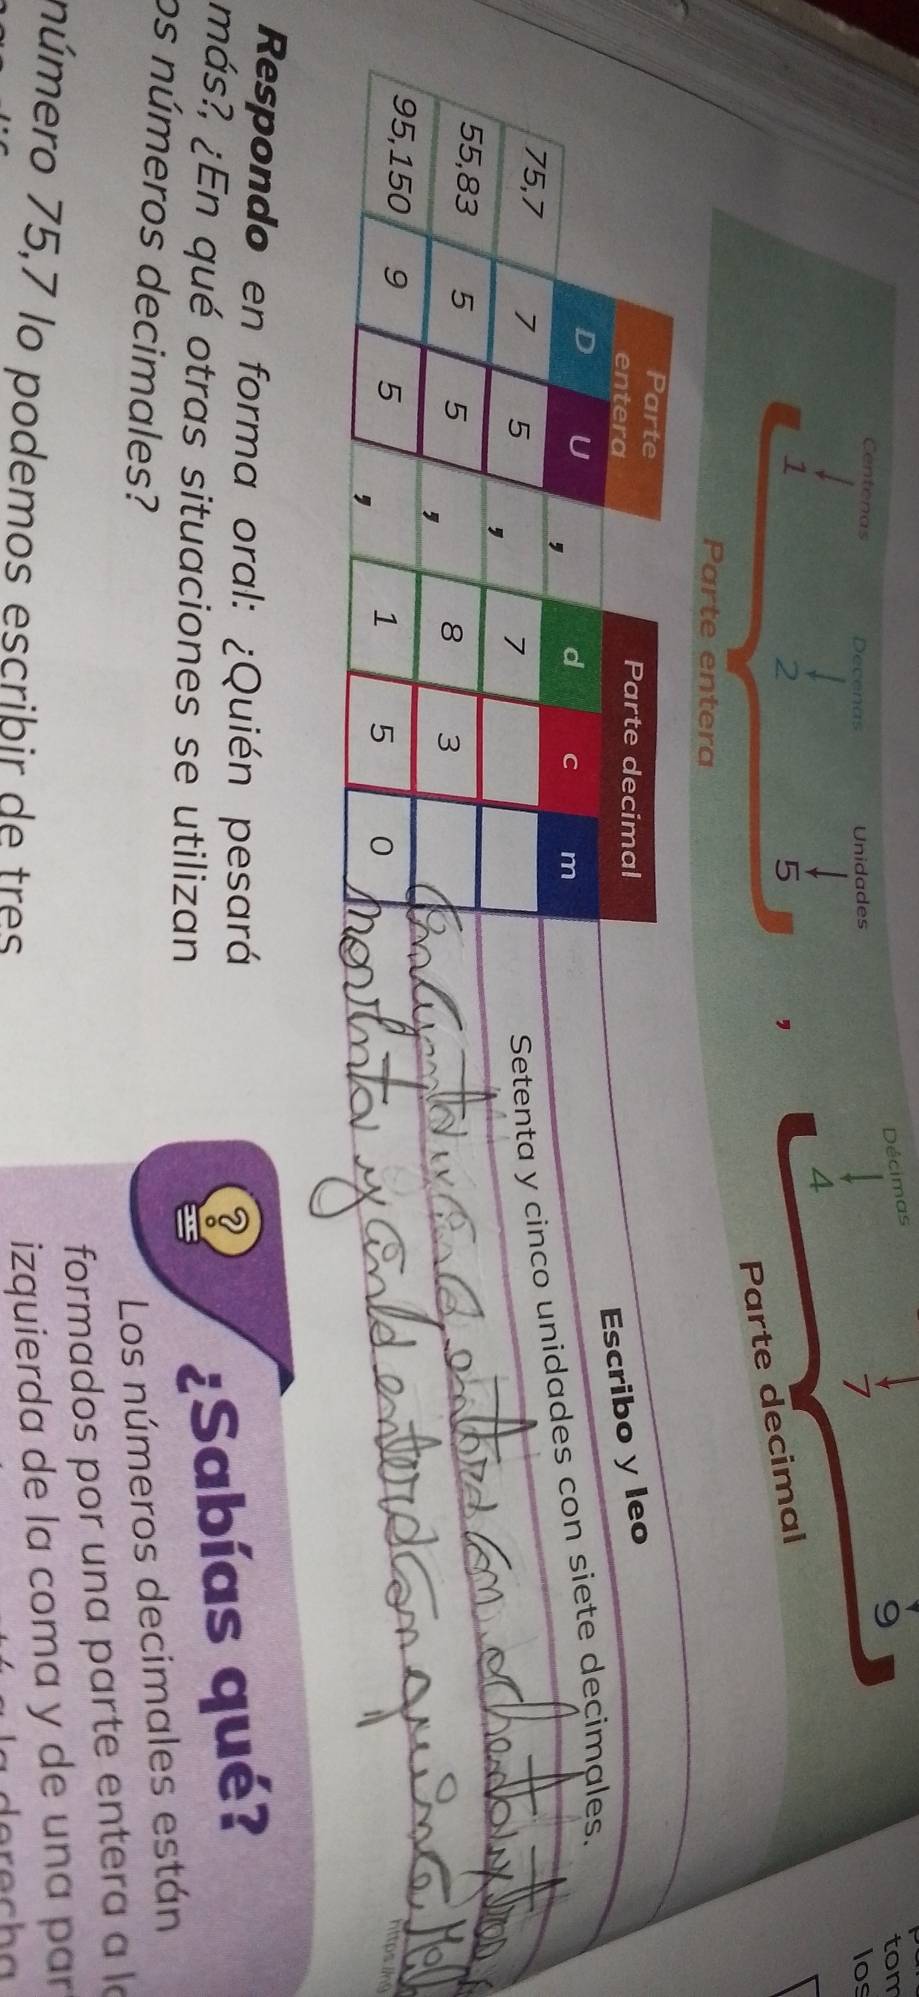 tom
los
Centenas Decenas Unidades Décimas
1 2 5 , 4 7 9
Parte entera Parte decimal
Parte entera Parte decimal Escribo y leo
D U , d c m
75,7 7 5 , 7 Setenta y cinco unidades con siete decimales.
55,83 5 5 , 8 3 Cincuenta y cinco entera con ochenta y tres
95,150 9 5 , 1 5 0
Respondo en forma oral: ¿Quién pesará
más?, ¿En qué otras situaciones se utilizan
os números decimales?
número 75,7 lo podemos escribir de tres
¿Sabías qué?
Los números decimales están
formados por una parte entera a la
izquierda de la coma y de una par
derecha